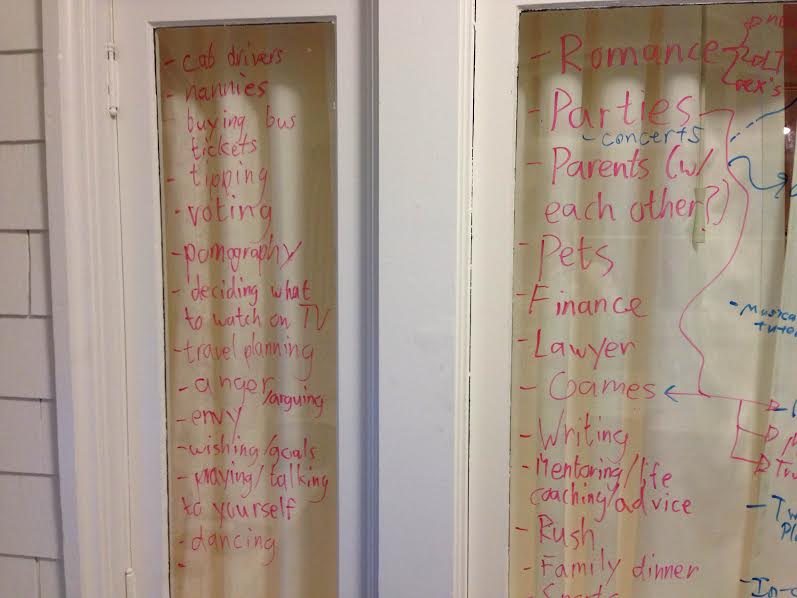 - cab drivers
- nannies
buying bus
tickets
- tipping
- voting
- pornography
- deciding what
to watch on TV
- travel planning
- anger/arguing
- envy
- wishing/goals
- praying/talking
to yourself
- dancing
-
- Romance
ex's
- Parties
- concerts
- Parents (w/
each other?)
- Pets
- Finance
- Lawyer
- Games
- Writing
- Mentoring/life
coaching/advice
- Rush
- Family dinner